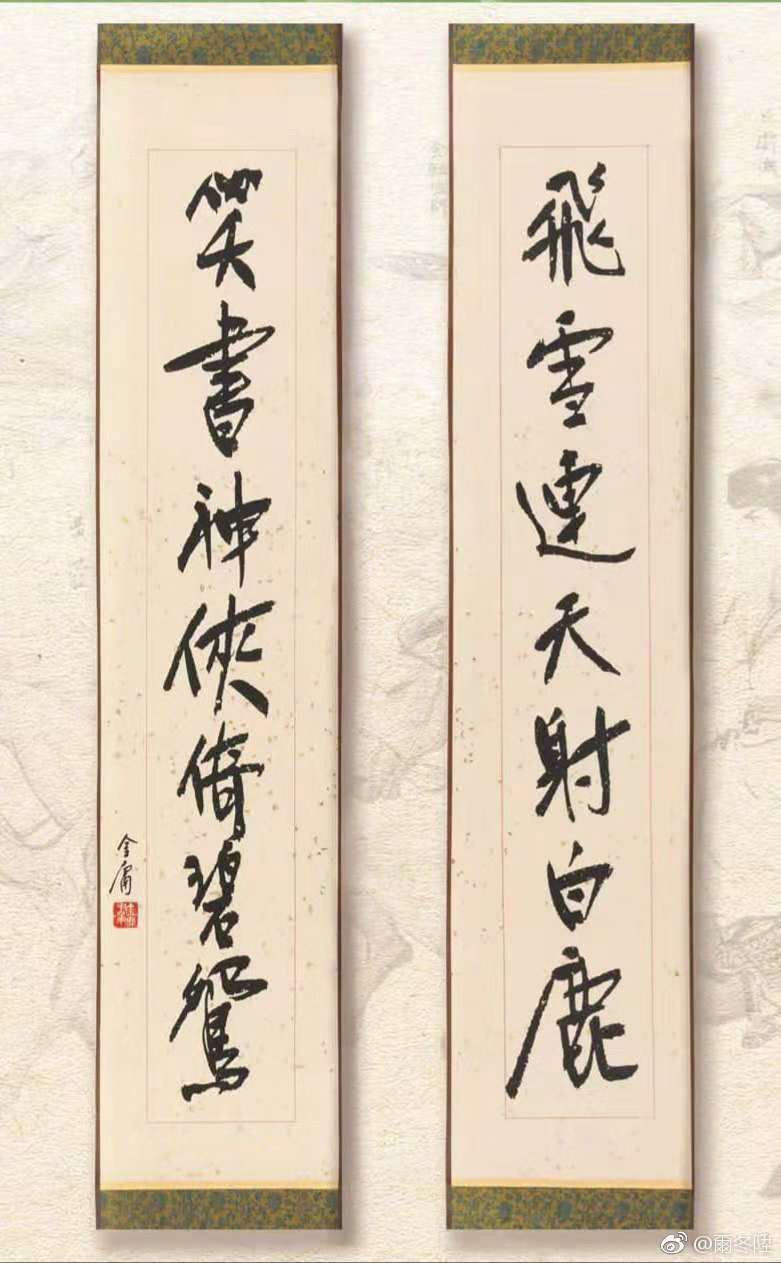 飛雪連天射白鹿
笑書神俠倚碧鴛
金庸
@雨冬陞